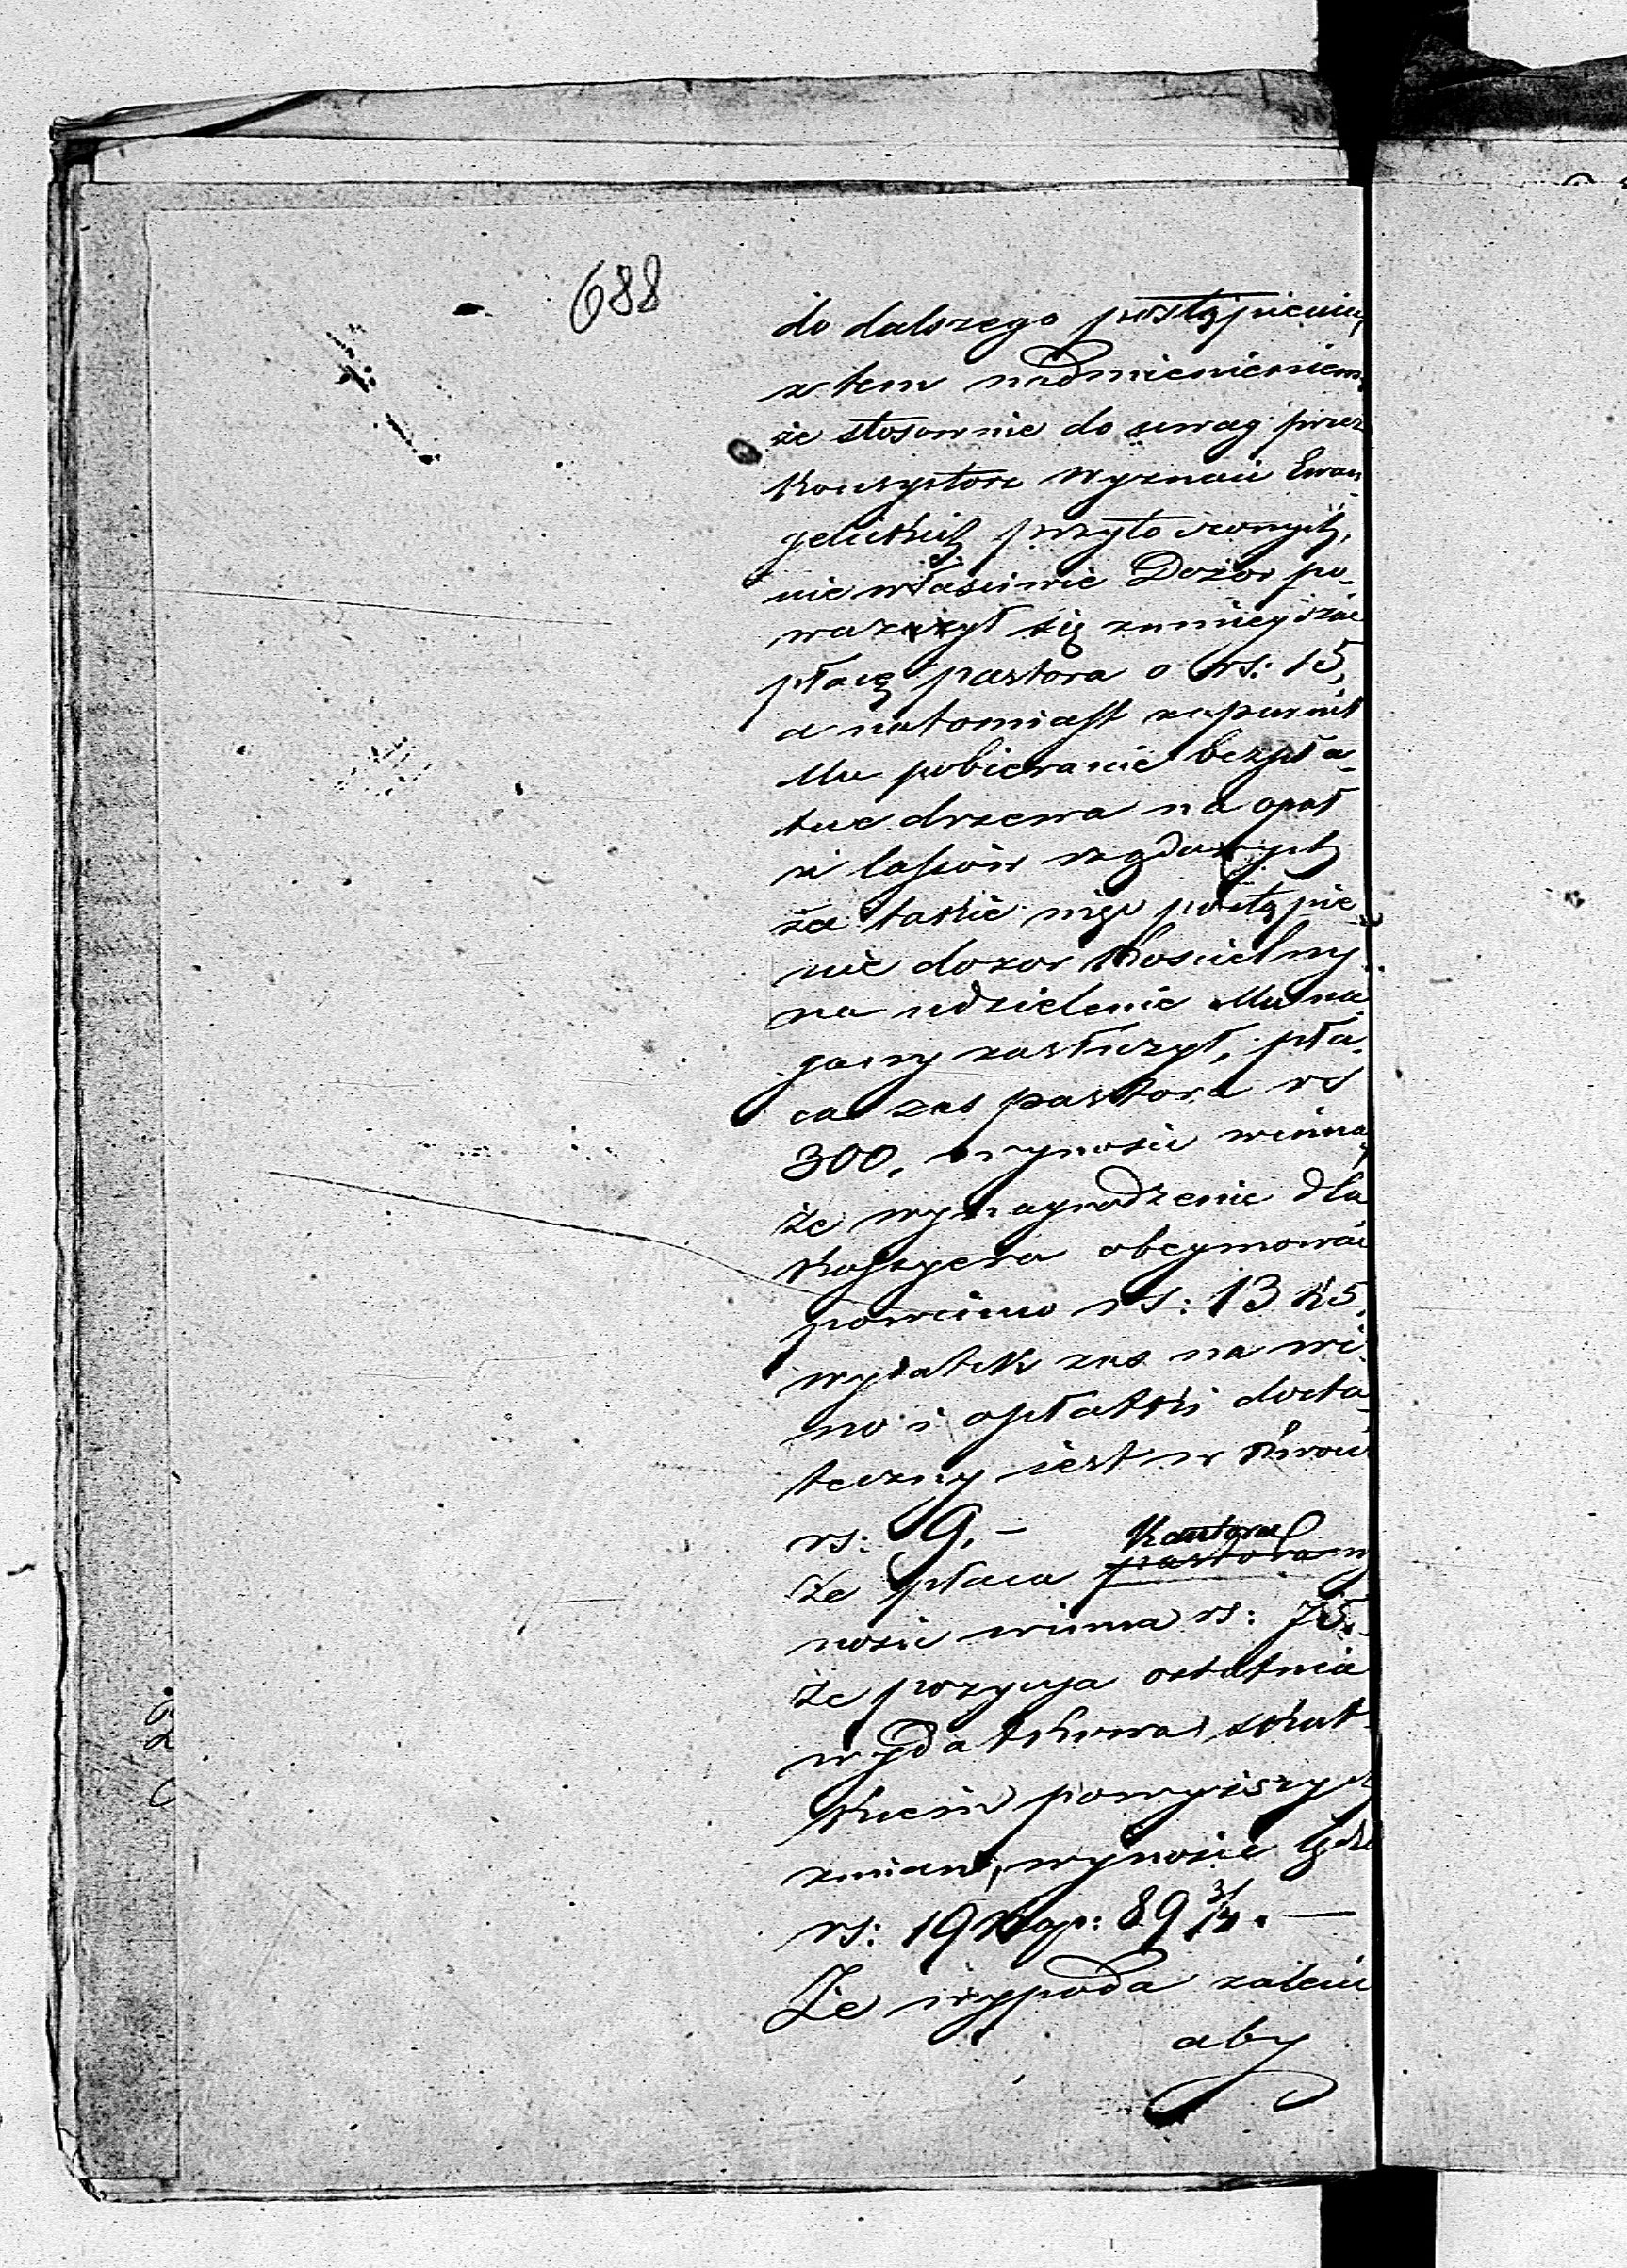 688
do dalszego postąpienia,
z tem nadmienieniem,
że stosownie do uwag przez
Konsystorz wyznań Ewan
gelickich przytoczonych,
nie właściwie Dozór po-
ważył się zmniejszać
płacę pastora o rs: 15,
a natomiast zapewnił
Mu pobieranie bezpła-
tne drzewa na opał
z lasów rządowych
za takie więc postąpie-
nie dozor Kościelny
na udzielenie Mu na
gany zasłużył, pła-
ca zas pastora rs
300, wynosić winna,
że wynagrodzenie dla
Kassyera obeymować
powinno rs: 13 k 5,
wydatek zas na wi-
no i opłatki dosta-
teczny iest w kwocie
rs: 9. –
Kantora
że płaca pastora wy
nosić winna rs: 75.
że pozycya ostatnia
wydatkowa, skut-
kiem powyższych
zmian, wynosić będzie
rs: 19 kop: 89
Że wypada zalecić
aby